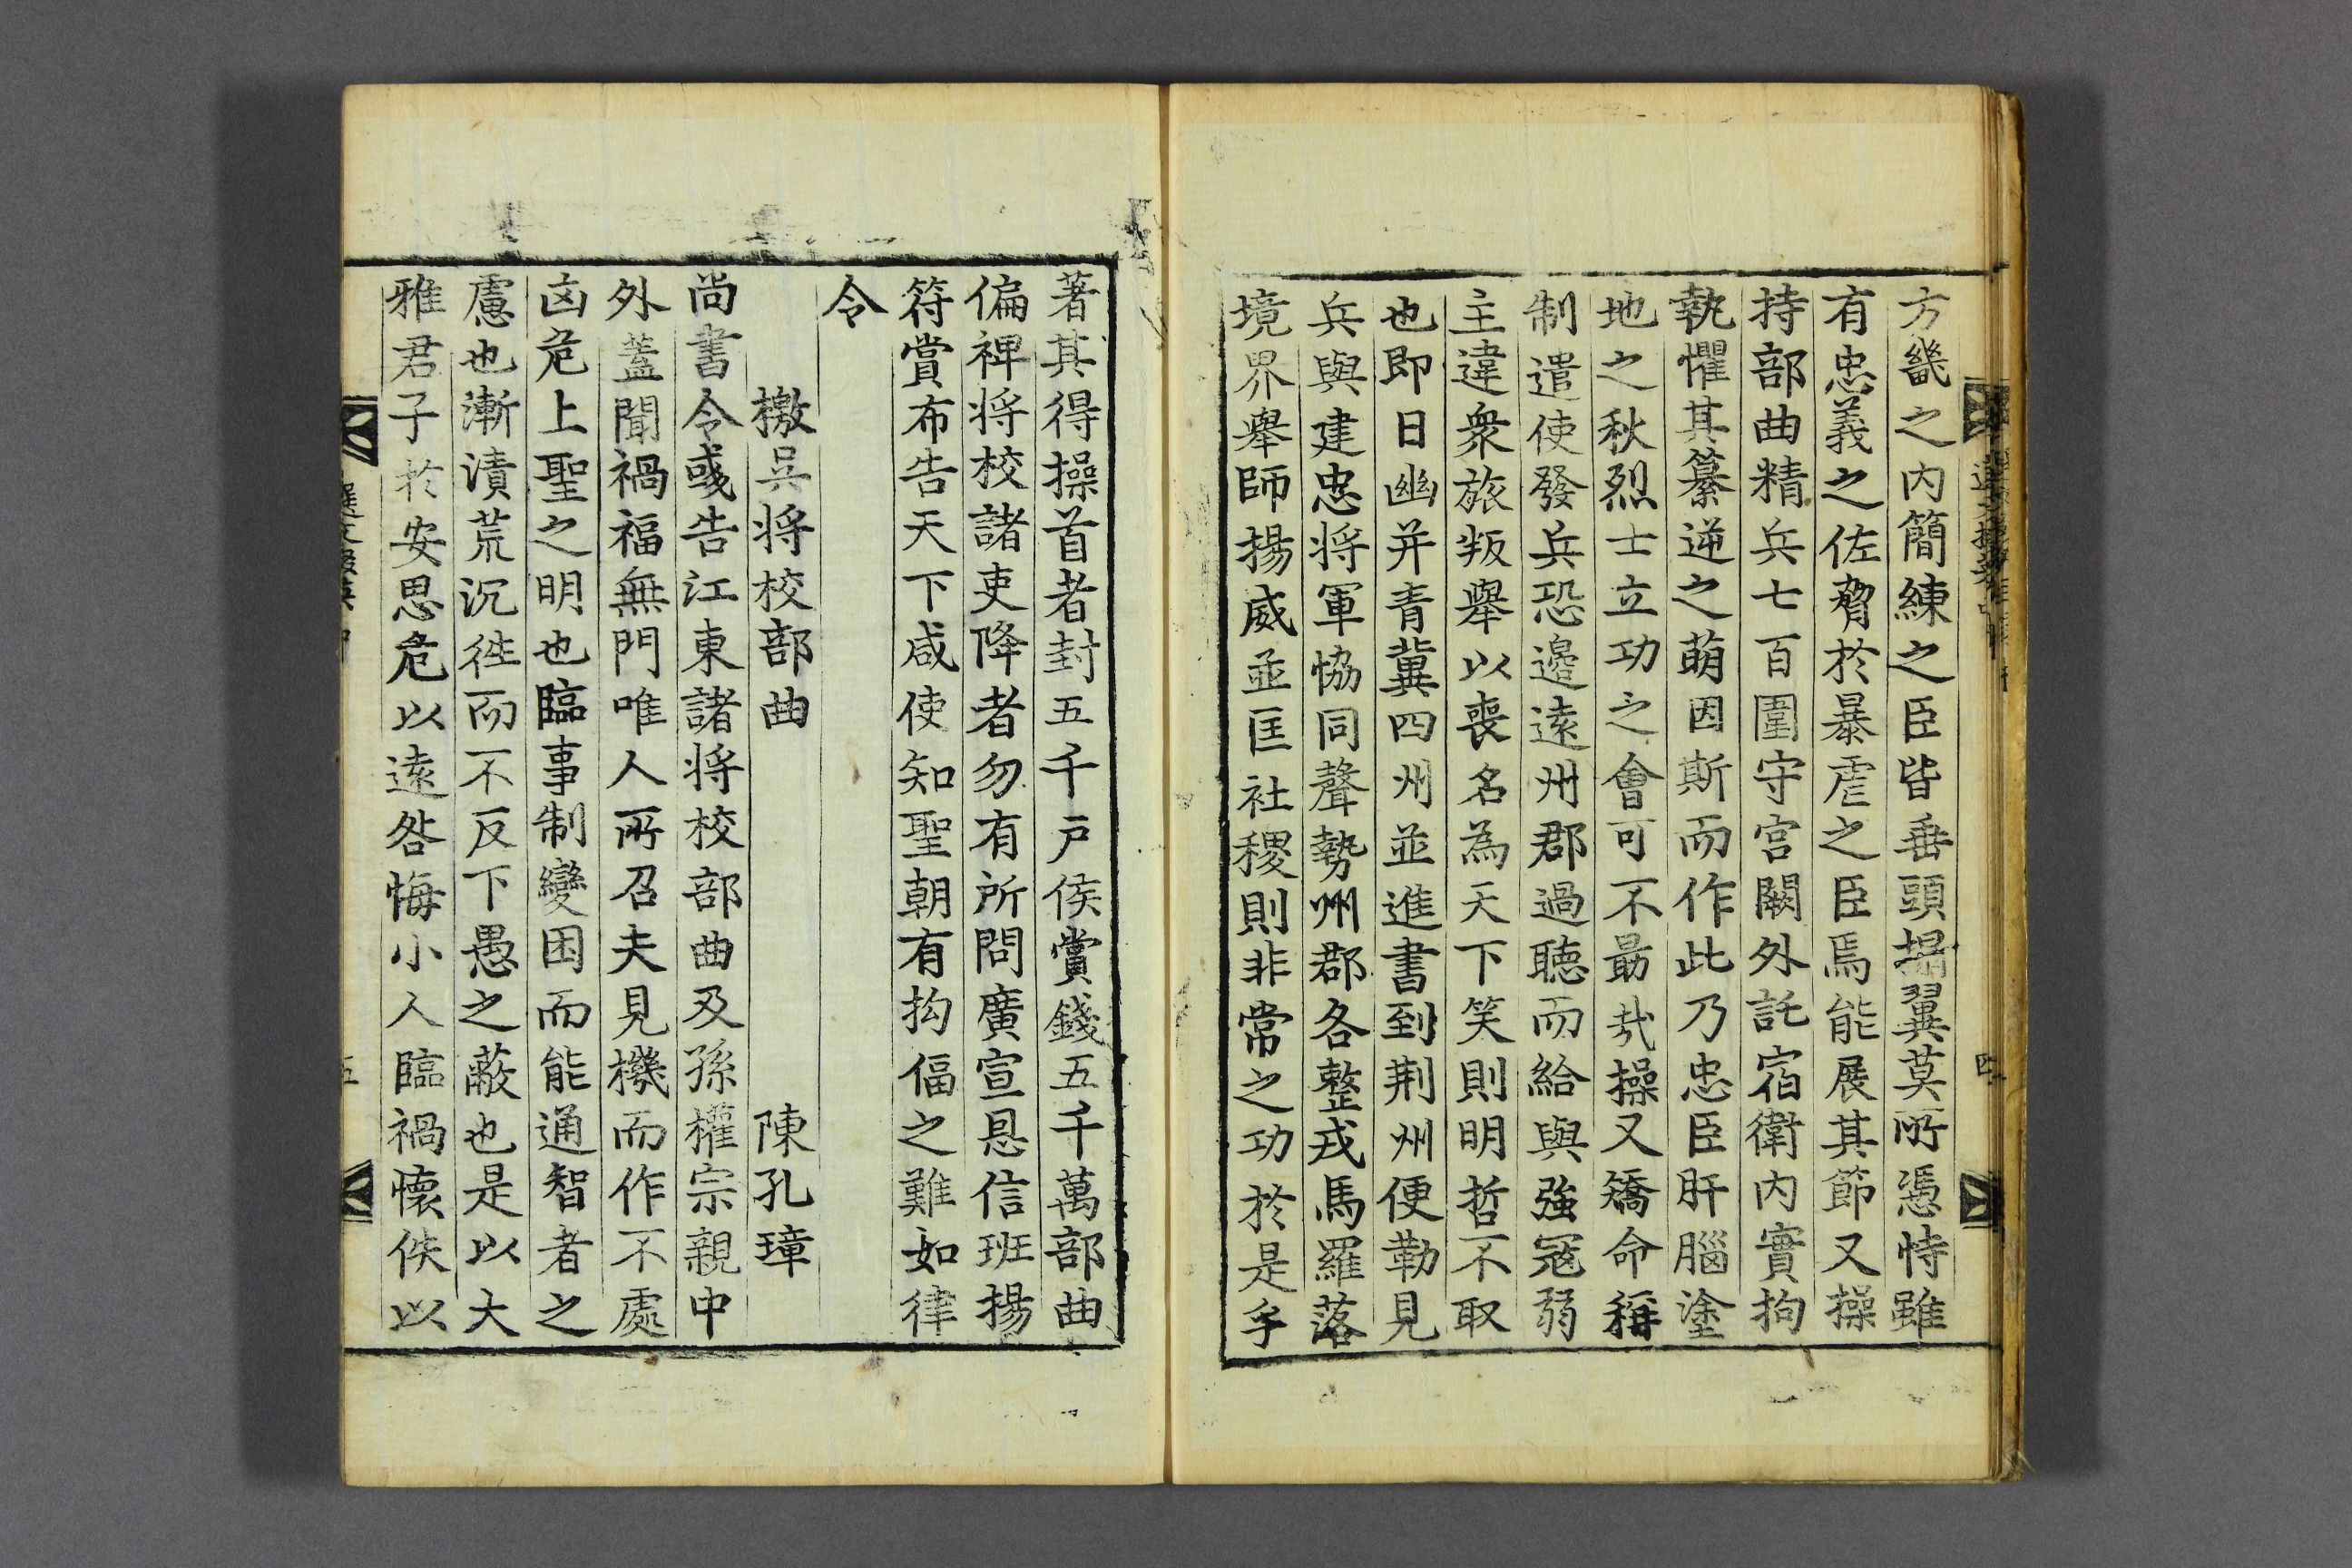 方畿之内簡練之臣皆垂頭搨翼莫所憑恃雖
有忠義之佐脅於暴虐之臣焉能展其節又操
持部曲精兵七百圍守宫闕外託宿衛内實拘
執懼其簒逆之萌因斯而作此乃忠臣肝腦塗
地之秋烈士立功之會可不勗㢤操又矯命稱
制遣使發兵恐邊遠州郡過聽而給與強冦弱
主違衆旅叛舉以喪名為天下笑則明哲不取
也即日幽并青冀四州並進書到荆州便勒見
兵與建忠将軍協同聲勢州郡各整戎馬羅落
境界舉師揚威並匡社稷則非常之功於是乎
著其得操首者封五千戶侯賞錢五千萬部曲
偏裨将校諸吏降者勿有所問廣宣恩信班揚
符賞布告天下咸使知聖朝有拘偪之難如律
令
檄吳将校部曲 陳孔璋
尚書令彧告江東諸将校部曲及孫權宗親中
外蓋聞禍福無門唯人所召夫見機而作不處
凶危上聖之明也臨事制變困而能通智者之
慮也漸漬荒沉徃而不反下愚之蔽也是以大
雅君子於安思危以遠咎悔小人臨禍懷佚以
五